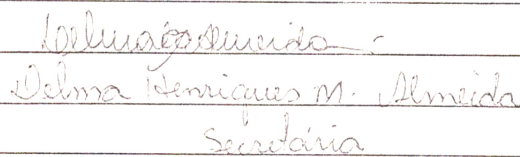 Delma Henriques M. Almeida
Secretária